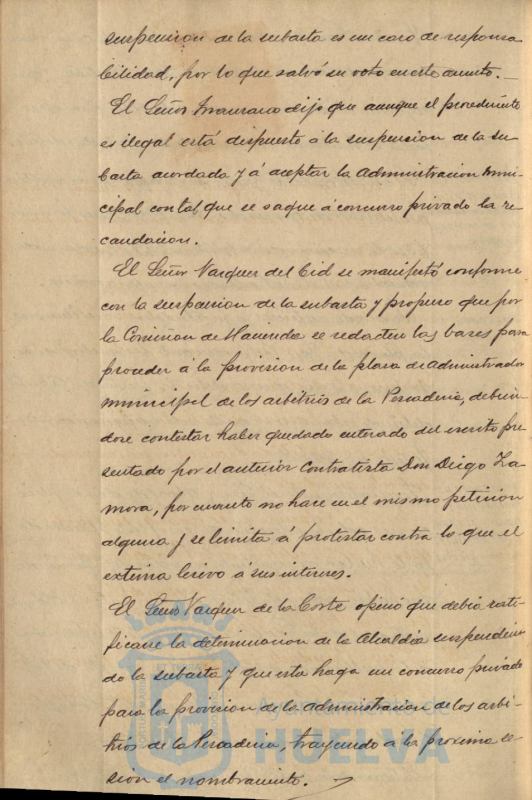 suspension de la subasta es un caso de responsa
bilidad, por lo que salvó su voto en este asunto.—
El Señor dijo que aunque el procedimiento
es ilegal está dispuesto á la suspension de la su
basta acordada y á aceptar la administracion muni-
cipal con tal que se saque á concurso privado la re
caudacion.
El Señor Vazquez del Cid se manifestó conforme
con la suspension de la subasta y propuso que por
la Comision de Hacienda se redacten las bases para
proceder á la provision de la plaza de administrador
municipal de los arbitrios de la Pescaderia, debien-
dose contestar haber quedado enterado del escrito pre
sentado por el anterior contratista Don Diego Za
mora, por cuanto no hace en el mismo peticion
alguna y se limita á protestar contra lo que el
extima lesivo á sus intereses.
El Señor Vazquez de la Corte opinó que debia rati-
ficarse la determinacion de la Alcaldia suspendien-
do la subasta y que esta haga un concurso privado
para la provision de la administracion de los arbi-
trios de la Pescaderia, trayendo a la proxima se
sion el nombramiento.
Ayuntamiento de
HUELVA